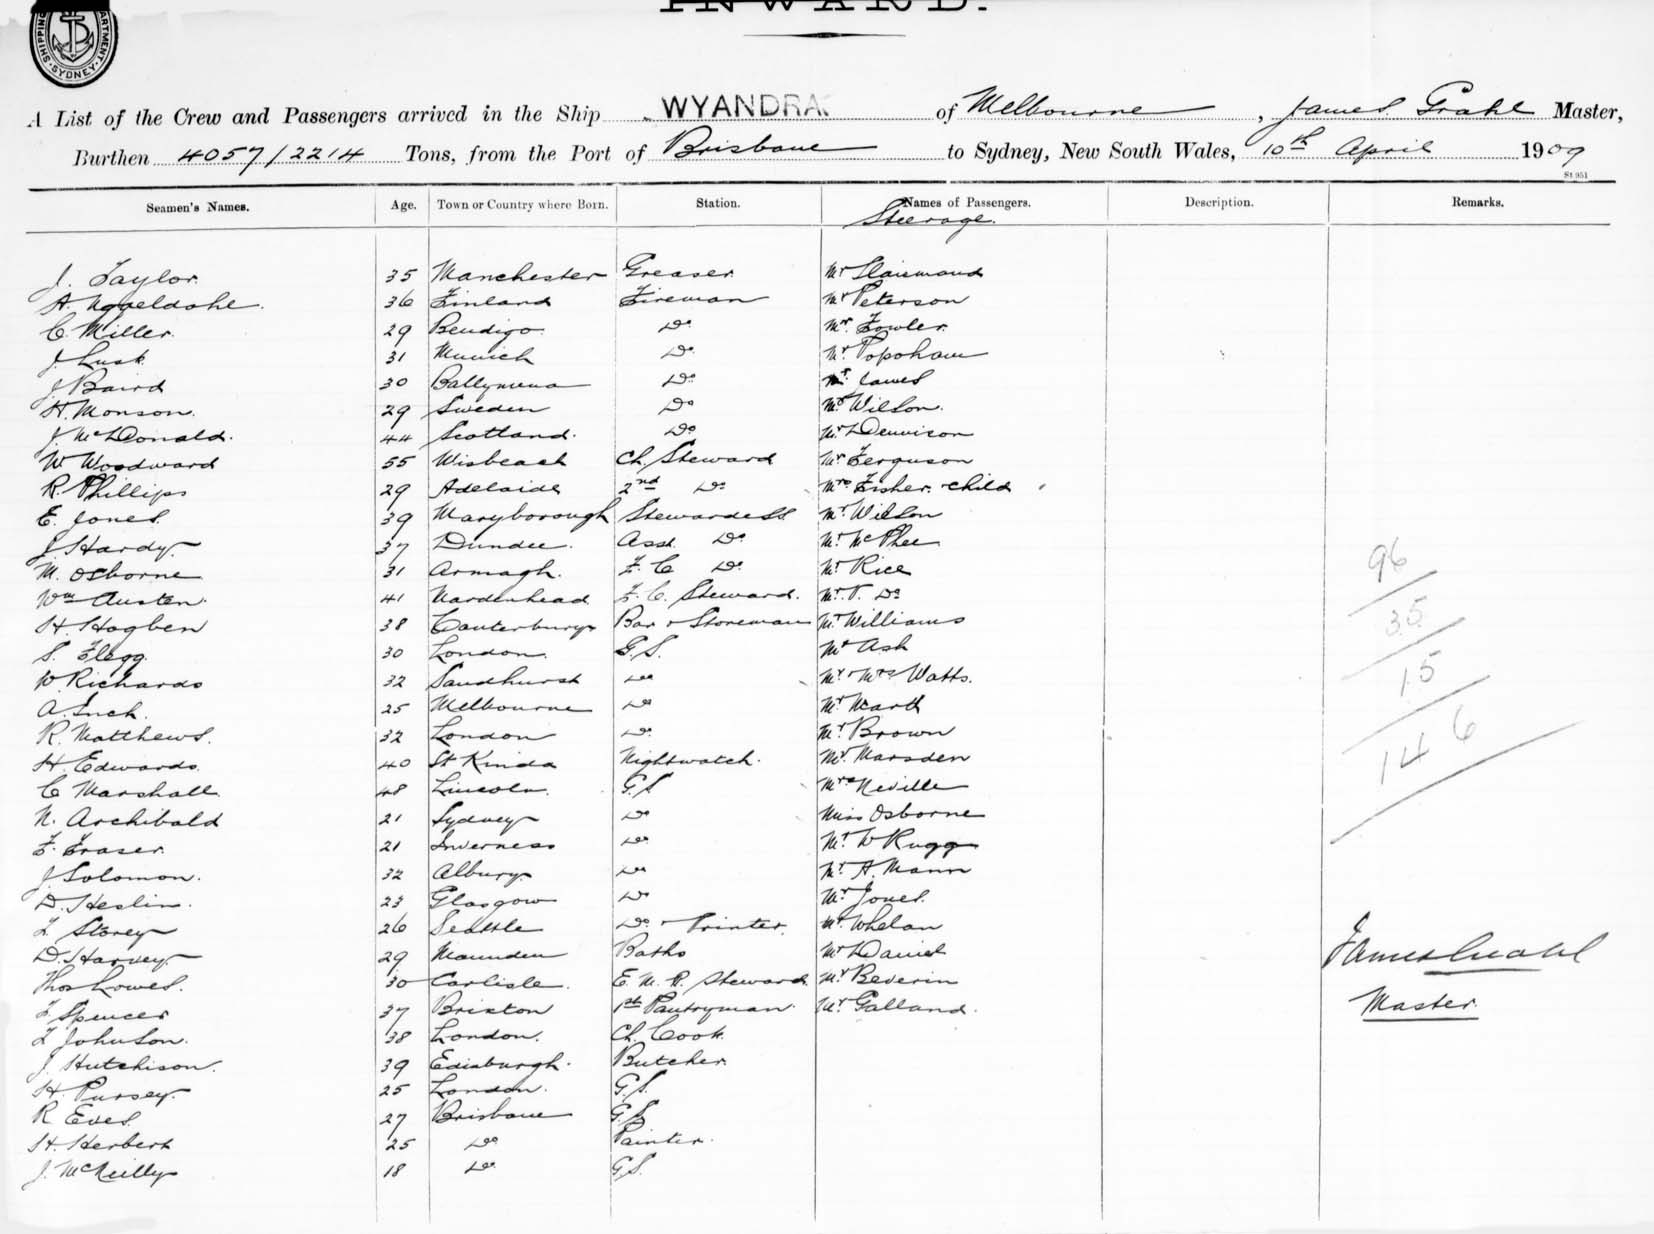 INWARD.
SHIPPING DEPARTMENT SYDNEY
A List of the Crew and Passengers arrived in the Ship WYANDRA of Melbourne, James Grahl Master,
Burthen 4057/2214 Tons, from the Port of Brisbane to Sydney, New South Wales, 10th April 1909
St 951
Seamen's Names. Age. Town or Country where Born. Station. Names of Passengers. Description. Remarks.
Steerage.
J. Taylor 35 Manchester Greaser Mr
A. 36 Finland Fireman Mr Peterson
C. Miller 29 Bendigo Do Mr Fowler
J. Lusk 31 Munich Do Mr Popoham
J. Baird 30 Ballymena Do Mr James
H. Monson. 29 Sweden Do Mr Wilson.
J. McDonald. 44 Scotland. Do Mr Dennison
W Woodward 55 Wisbeach Ch. Steward Mr Ferguson
R. Phillips 29 Adelaide 2nd Do Mrs Fisher + child
E. Jones. 39 Maryborough Stewardess Mr Wilson
J. Hardy. 37 Dundee. Asst Do Mr McPhee
M. Osborne 31 Armagh. F.C. Do Mr Rice
Wm Austen. 41 F.C. Steward. Mr T. Do
H. Hogben 38 Canterbury Bar + Storeman Mr Williams
S. Flegg. 30 London. G.S. Mr Ash
W. Richards 32 Sandhurst Do Mr + Mrs Watts.
A. Inch. 25 Melbourne Do Mr Marth
R. Matthews. 32 London Do Mr Brown
H Edwards. 40 St Kinda Nightwatch. Mr Marsden
C Marshall. 48 Lincoln. G.S Mrs Neville
N. Archibald 21 Sydney Do Miss Osborne
F. Fraser. 21 Inverness Do Mr W Rugg
J. Solomon. 32 Albury. Do Mr A. Mann
D. Heslin. 23 Glasgow Do Mr Jones.
F. Storey 26 Seattle Do + Printer. Mr Whelan
D. Harvey 29 Baths Mr Daniel
Thos Lowes. 30 Carlisle. E.M.R. Steward. Mr Beverin
F. Spencer 37 Brixton 1st Pantryman. Mr Galland.
F. Johnson. 38 London. Ch. Cook
J. Hutchison. 39 Edinburgh. Butcher.
H. Pursey. 25 London. G.S.
R Eves. 27 Brisbane G.S
H. Herbert 25 Do Painter.
J. McNeilly 18 Do G.S.
96
35
15
146
James Grahl
Master.